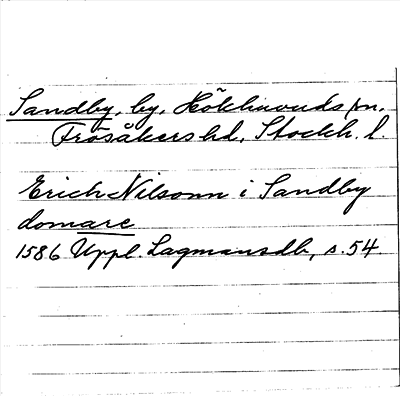 Sandby, by, Hökhuvuds sn,
Frösåkers hd, Stockh. l.
Erich Nilsonn i Sandby
domare
1586 Uppl. Lagmansdb, s. 54